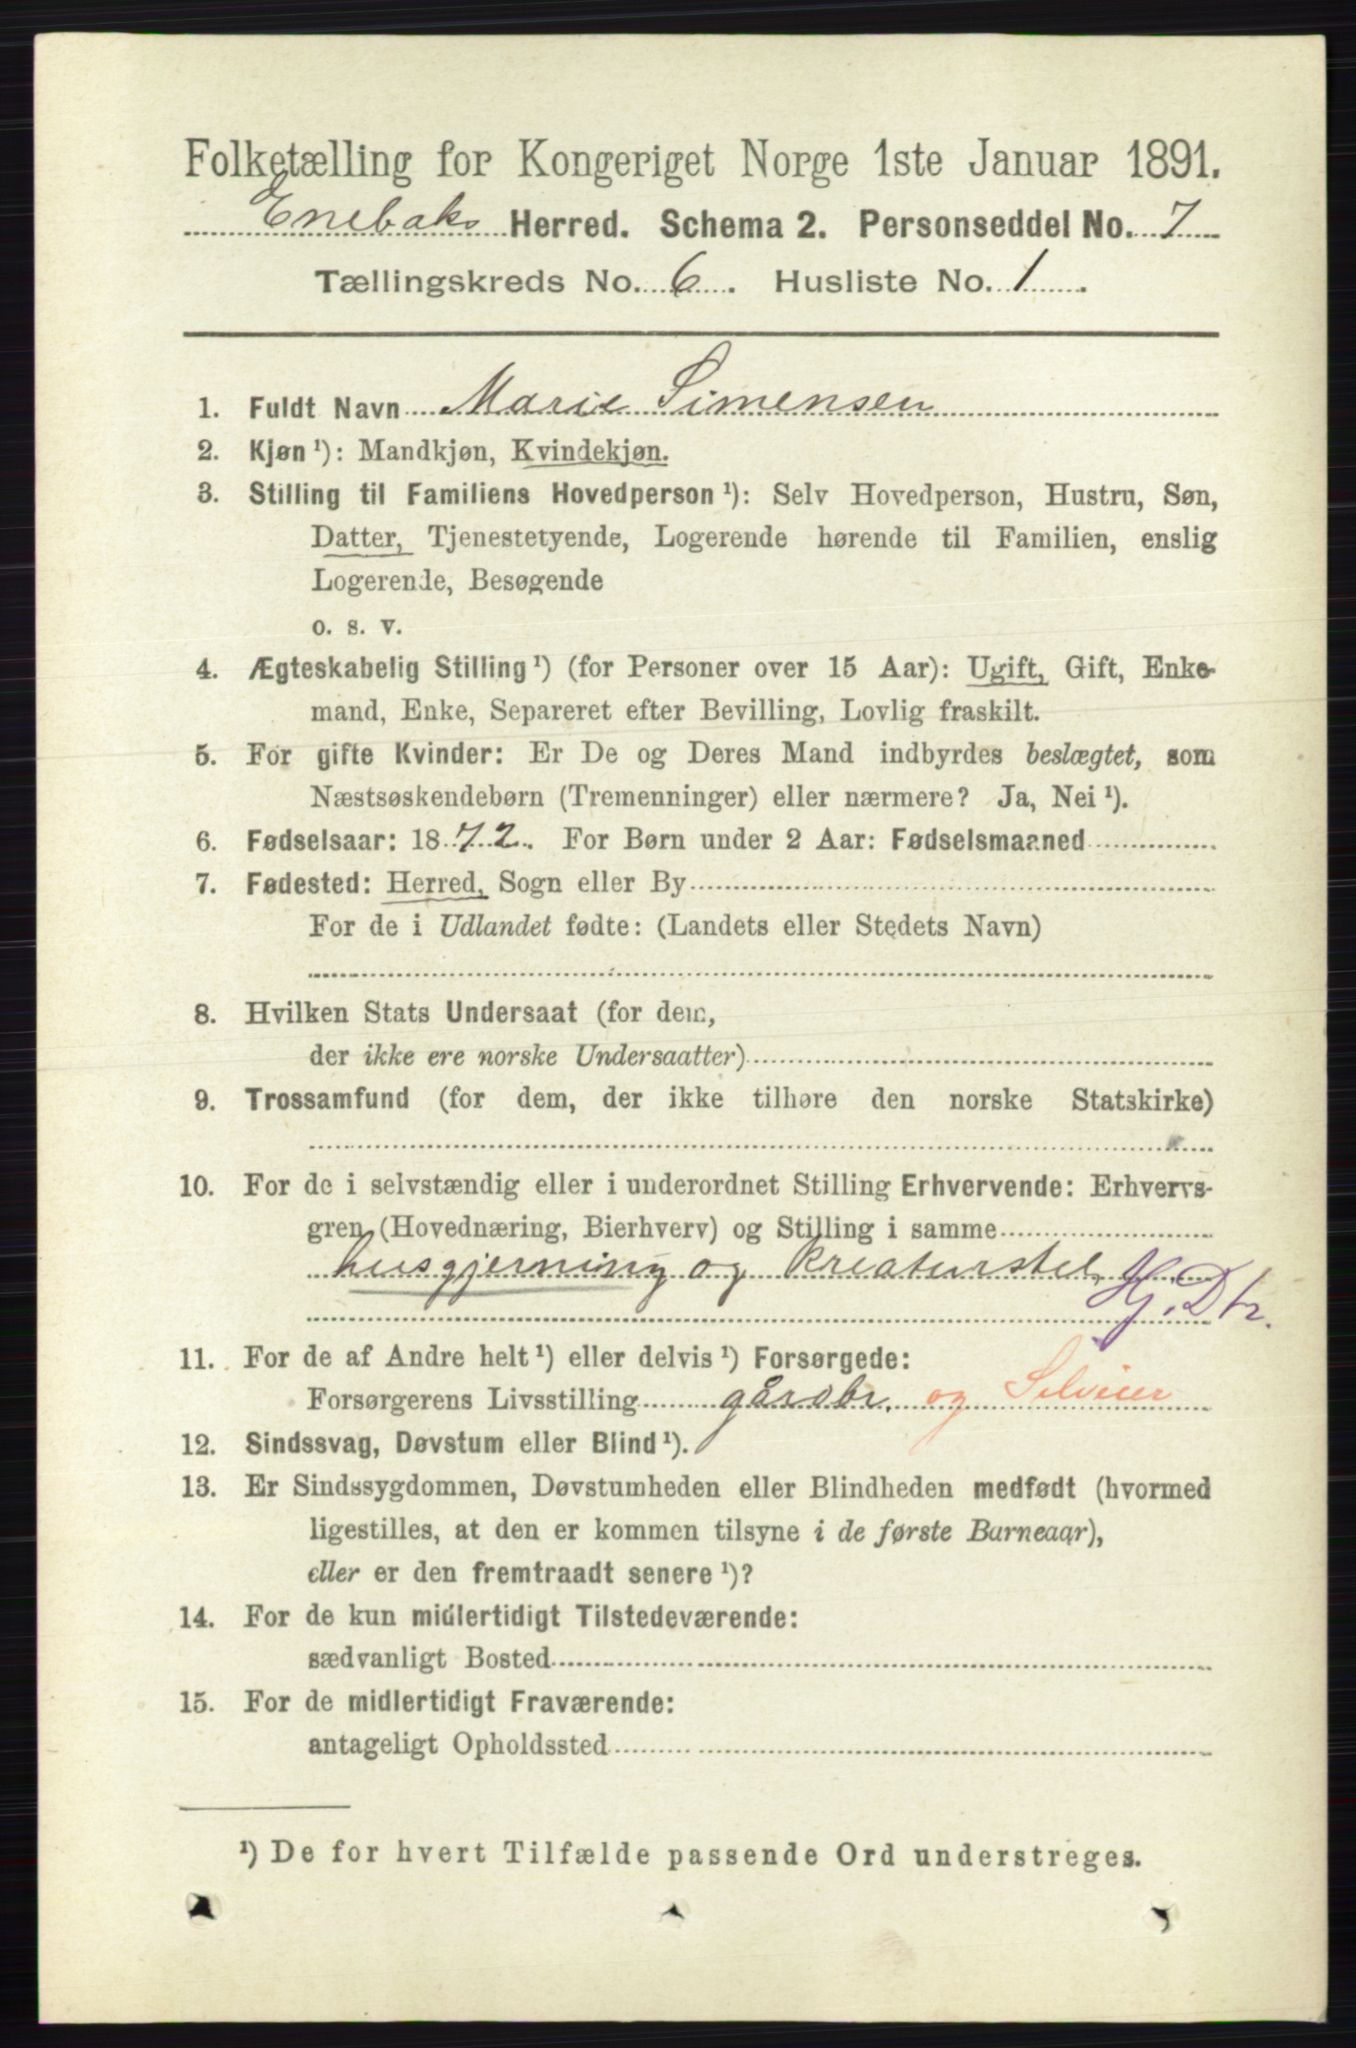 Folketælling for Kongeriget Norge 1ste Januar 1891.
Enebaks Herred. Schema 2. Personseddel No. 7
Tællingskreds No. 6. Husliste No. 1.
1. Fuldt Navn Marie Simensen
2. Kjøn ¹): Mandkjøn, Kvindekjøn.
3. Stilling til Familiens Hovedperson ¹): Selv Hovedperson, Hustru, Søn,
Datter, Tjenestetyende, Logerende hørende til Familien, enslig
Logerende, Besøgende
o. s. v.
4. Ægteskabelig Stilling ¹) (for Personer over 15 Aar): Ugift, Gift, Enke-
mand, Enke, Separeret efter Bevilling, Lovlig fraskilt.
5. For gifte Kvinder: Er De og Deres Mand indbyrdes beslægtet, som
Næstsøskendebørn (Tremenninger) eller nærmere? Ja, Nei ¹).
6. Fødselsaar: 1872. For Børn under 2 Aar: Fødselsmaaned
7. Fødested: Herred, Sogn eller By
For de i Udlandet fødte: (Landets eller Stedets Navn)
8. Hvilken Stats Undersaat (for dem,
der ikke ere norske Undersaatter)
9. Trossamfund (for dem, der ikke tilhøre den norske Statskirke)
10. For de i selvstændig eller i underordnet Stilling Erhvervende: Erhvervs-
gren (Hovednæring, Bierhverv) og Stilling i samme
husgjerning og kreaturstel, Hj. Dtr.
11. For de af Andre helt ¹) eller delvis ¹) Forsørgede:
Forsørgerens Livsstilling gårdbr. og Selveier
12. Sindssvag, Døvstum eller Blind ¹).
13. Er Sindssygdommen, Døvstumheden eller Blindheden medfødt (hvormed
ligestilles, at den er kommen tilsyne i de første Barneaar),
eller er den fremtraadt senere ¹)?
14. For de kun midlertidigt Tilstedeværende:
sædvanligt Bosted
15. For de midlertidigt Fraværende:
antageligt Opholdssted
¹) De for hvert Tilfælde passende Ord understreges.